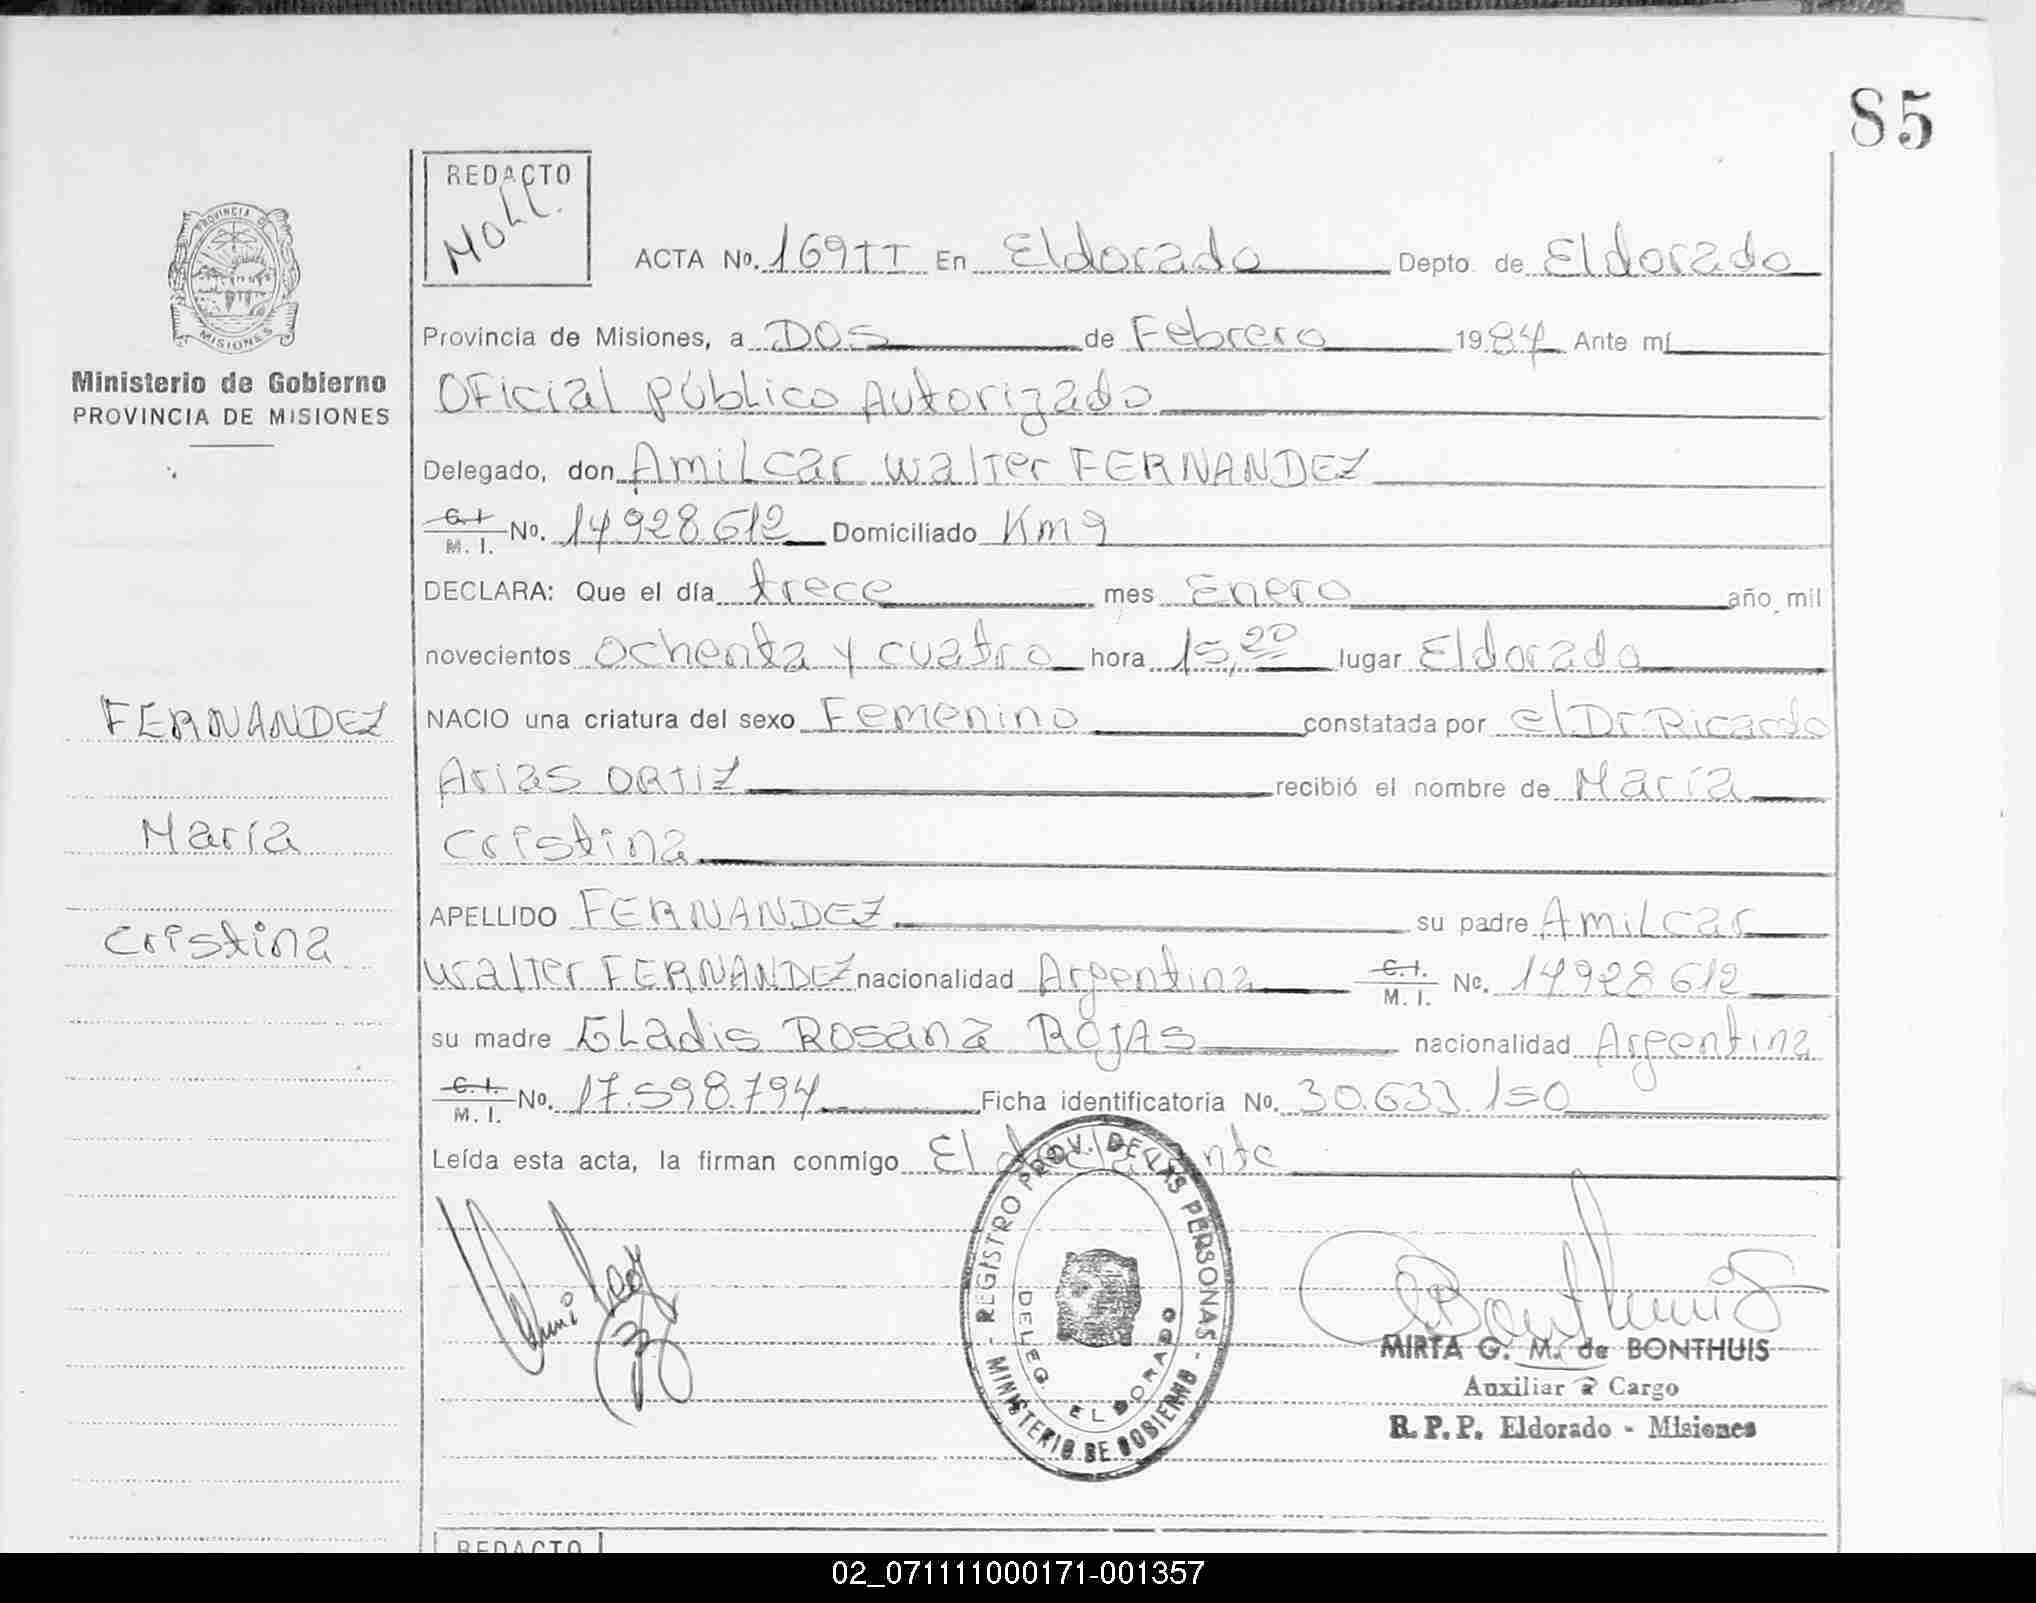 85
REDACTO
MOLL.
PROVINCIA DE
MISIONES
Ministerio de Gobierno
PROVINCIA DE MISIONES
ACTA No. 169TT En Eldorado Depto. de Eldorado
Provincia de Misiones, a DOS de Febrero 1984 Ante mí
Oficial público Autorizado
Delegado, don Amilcar Walter FERNANDEZ
C.I. M. I. No. 14928612 Domiciliado Km 9
DECLARA: Que el día trece mes Enero año mil
novecientos ochenta y cuatro hora 15,20 lugar Eldorado
FERNANDEZ
NACIO una criatura del sexo Femenino constatada por el Dr. Ricardo
Arias ORTIZ recibió el nombre de María
María
Cristina
APELLIDO FERNANDEZ su padre Amilcar
Cristina
Walter FERNANDEZ nacionalidad Argentina C.I. M. I. No. 14928612
su madre Gladis Rosana ROJAS nacionalidad Argentina
C.I. M. I. No. 17.598.794 Ficha identificatoria No. 30.633.150
Leída esta acta, la firman conmigo El declarante
REGISTRO PROV. DE LAS PERSONAS - MINISTERIO DE GOBIERNO -
DELEG. ELDORADO
MIRTA G. M. de BONTHUIS
Auxiliar a Cargo
R. P. P. Eldorado - Misiones
REDACTO
02_071111000171-001357